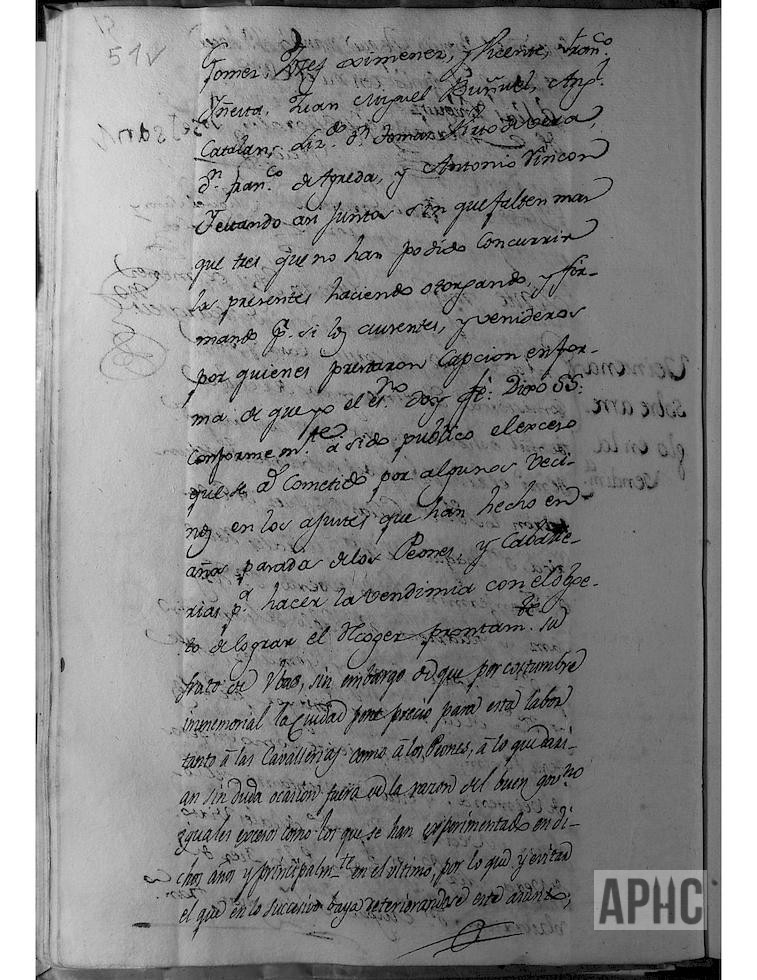 51v
Gomez, Josef Ximenez, y Vicente, Fran.co
Yñesta, Juan Miguel Buñuel, Ang.l
Catalan, Liz.do D.n Tomas Nieto de Vera,
D.n Fran.co de Apreda, y Antonio Vincon
Y estando asi juntos sin que falten mas
que tres que no han podido concurrir
la presentes haciendo otorgando, y fir-
mando p.r si los ausentes, y venideros
por quienes prestaron Capcion en for-
ma, de que yo el es.no doy fe: Dixo SS:
conformem.te a sido publico el exceso
que se a cometido por algunos Veci-
nos en los ajustes que han hecho en
aña parada de los Peones, y Cavalle-
rias p.a hacer la vendimia con el obge-
to de lograr el Recoger prontam.te su
fruto de Vbas, sin embargo de que por costumbre
immemorial la Ciudad pone precio para esta labor
tanto â las Cavallerias como â los Peones, â lo que dari-
an sin duda ocasion fuera de la razon del buen gov.no
iguales excesos como los que se han experimentado en di-
chos años y principalm.te en el ultimo, por lo que, y evitar
el que en lo sucesivo baya deteriorandose este asunto,
APHC